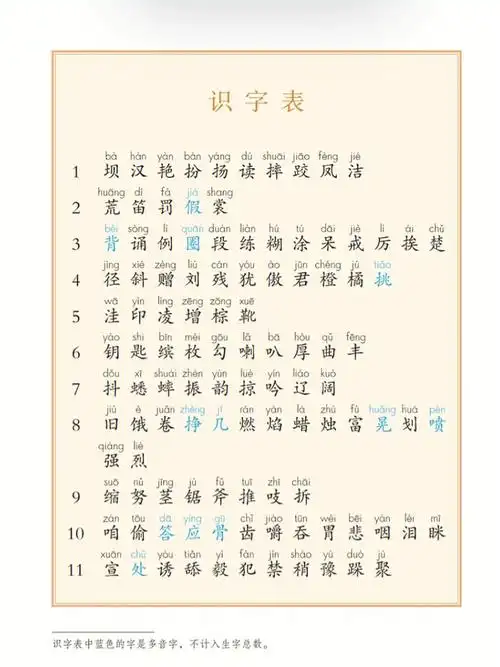 识字表
bà hàn yàn bàn yáng dú shuāi jiāo fèng jié
1 坝 汉 艳 扮 扬 读 摔 跤 凤 洁
huāng dí fá jià shang
2 荒 笛 罚 假 裳
bèi sòng lì quān duàn liàn hú tú dāi jiè lì ái chǔ
3 背 诵 例 圈 段 练 糊 涂 呆 戒 厉 挨 楚
jìng xié zèng liú cán yóu ào jūn chéng jú tiāo
4 径 斜 赠 刘 残 犹 傲 君 橙 橘 挑
wā yìn líng zēng zōng xuē
5 洼 印 凌 增 棕 靴
yào shi bīn méi gōu lǎ bā hòu qǔ fēng
6 钥 匙 缤 枚 勾 喇 叭 厚 曲 丰
dǒu xī shuài zhèn yùn lüè yín liáo kuò
7 抖 蟋 蟀 振 韵 掠 吟 辽 阔
jiù é juǎn zhēng jǐ rán yàn là zhú fù huǎng huá pèn
8 旧 饿 卷 挣 几 燃 焰 蜡 烛 富 晃 划 喷
qiáng liè
强 烈
suō nǔ jīng jù fǔ tuī zhī chāi
9 缩 努 茎 锯 斧 推 吱 拆
zán tōu dā yìng gū chǐ jiáo tūn wèi bēi yān lèi mī
10 咱 偷 答 应 骨 齿 嚼 吞 胃 悲 咽 泪 眯
xuān chǔ yòu tiǎn yì fàn jìn shāo yù duò jù
11 宣 处 诱 舔 毅 犯 禁 稍 豫 跺 聚
识字表中蓝色的字是多音字，不计入生字总数。